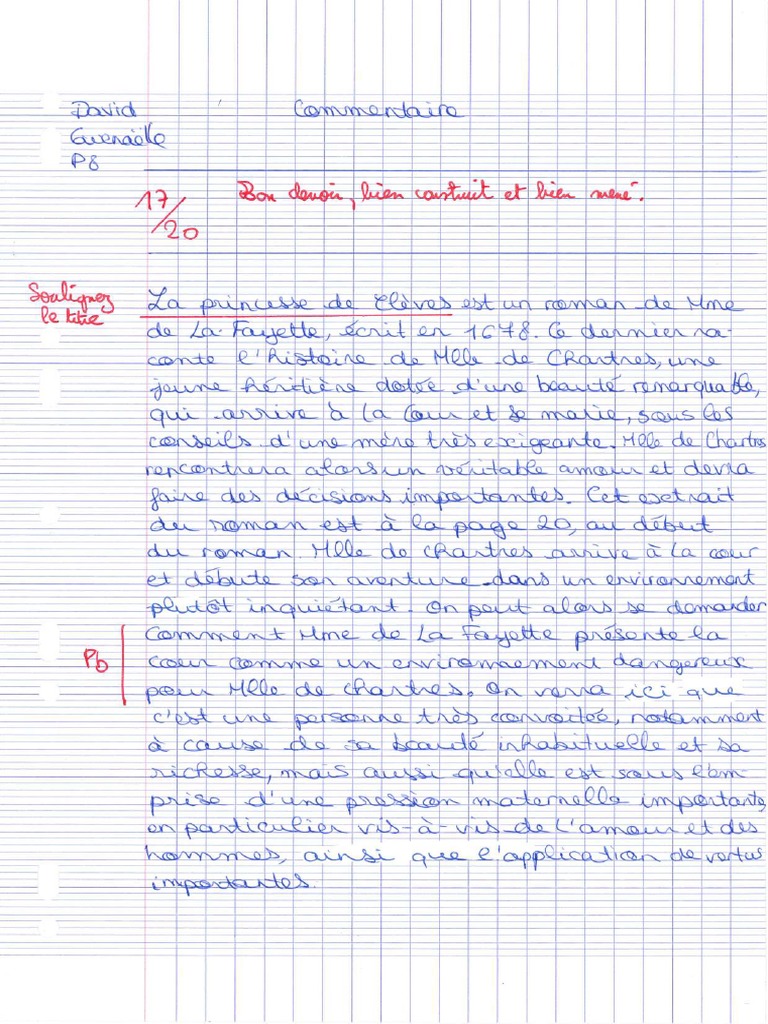 David
Commentaire
Gwenaëlle
P8
17/20
Bon devoir, bien construit et bien mené.
Soulignez
le titre
La princesse de Clèves est un roman de Mme
de La Fayette, écrit en 1678. Ce dernier ra-
conte l'histoire de Mlle de Chartres, une
jeune héritière dotée d'une beauté remarquable,
qui arrive à la Cour et se marie, sous les
conseils d'une mère très exigeante. Mlle de Chartres
rencontrera alors un véritable amour et devra
faire des décisions importantes. Cet extrait
du roman est à la page 20, au début
du roman. Mlle de Chartres arrive à la cour
et débute son aventure dans un environnement
plutôt inquiétant. On peut alors se demander
Pb
Comment Mme de La Fayette présente la
cour comme un environnaement dangereux
pour Mlle de Chartres. On verra ici que
c'est une personne très convoitée, notamment
à cause de sa beauté inhabituelle et sa
richesse, mais aussi qu'elle est sous l'em
prise d'une pression maternelle importante,
en particulier vis-à-vis de l'amour et des
hommes, ainsi que l'application de vertus
importantes.